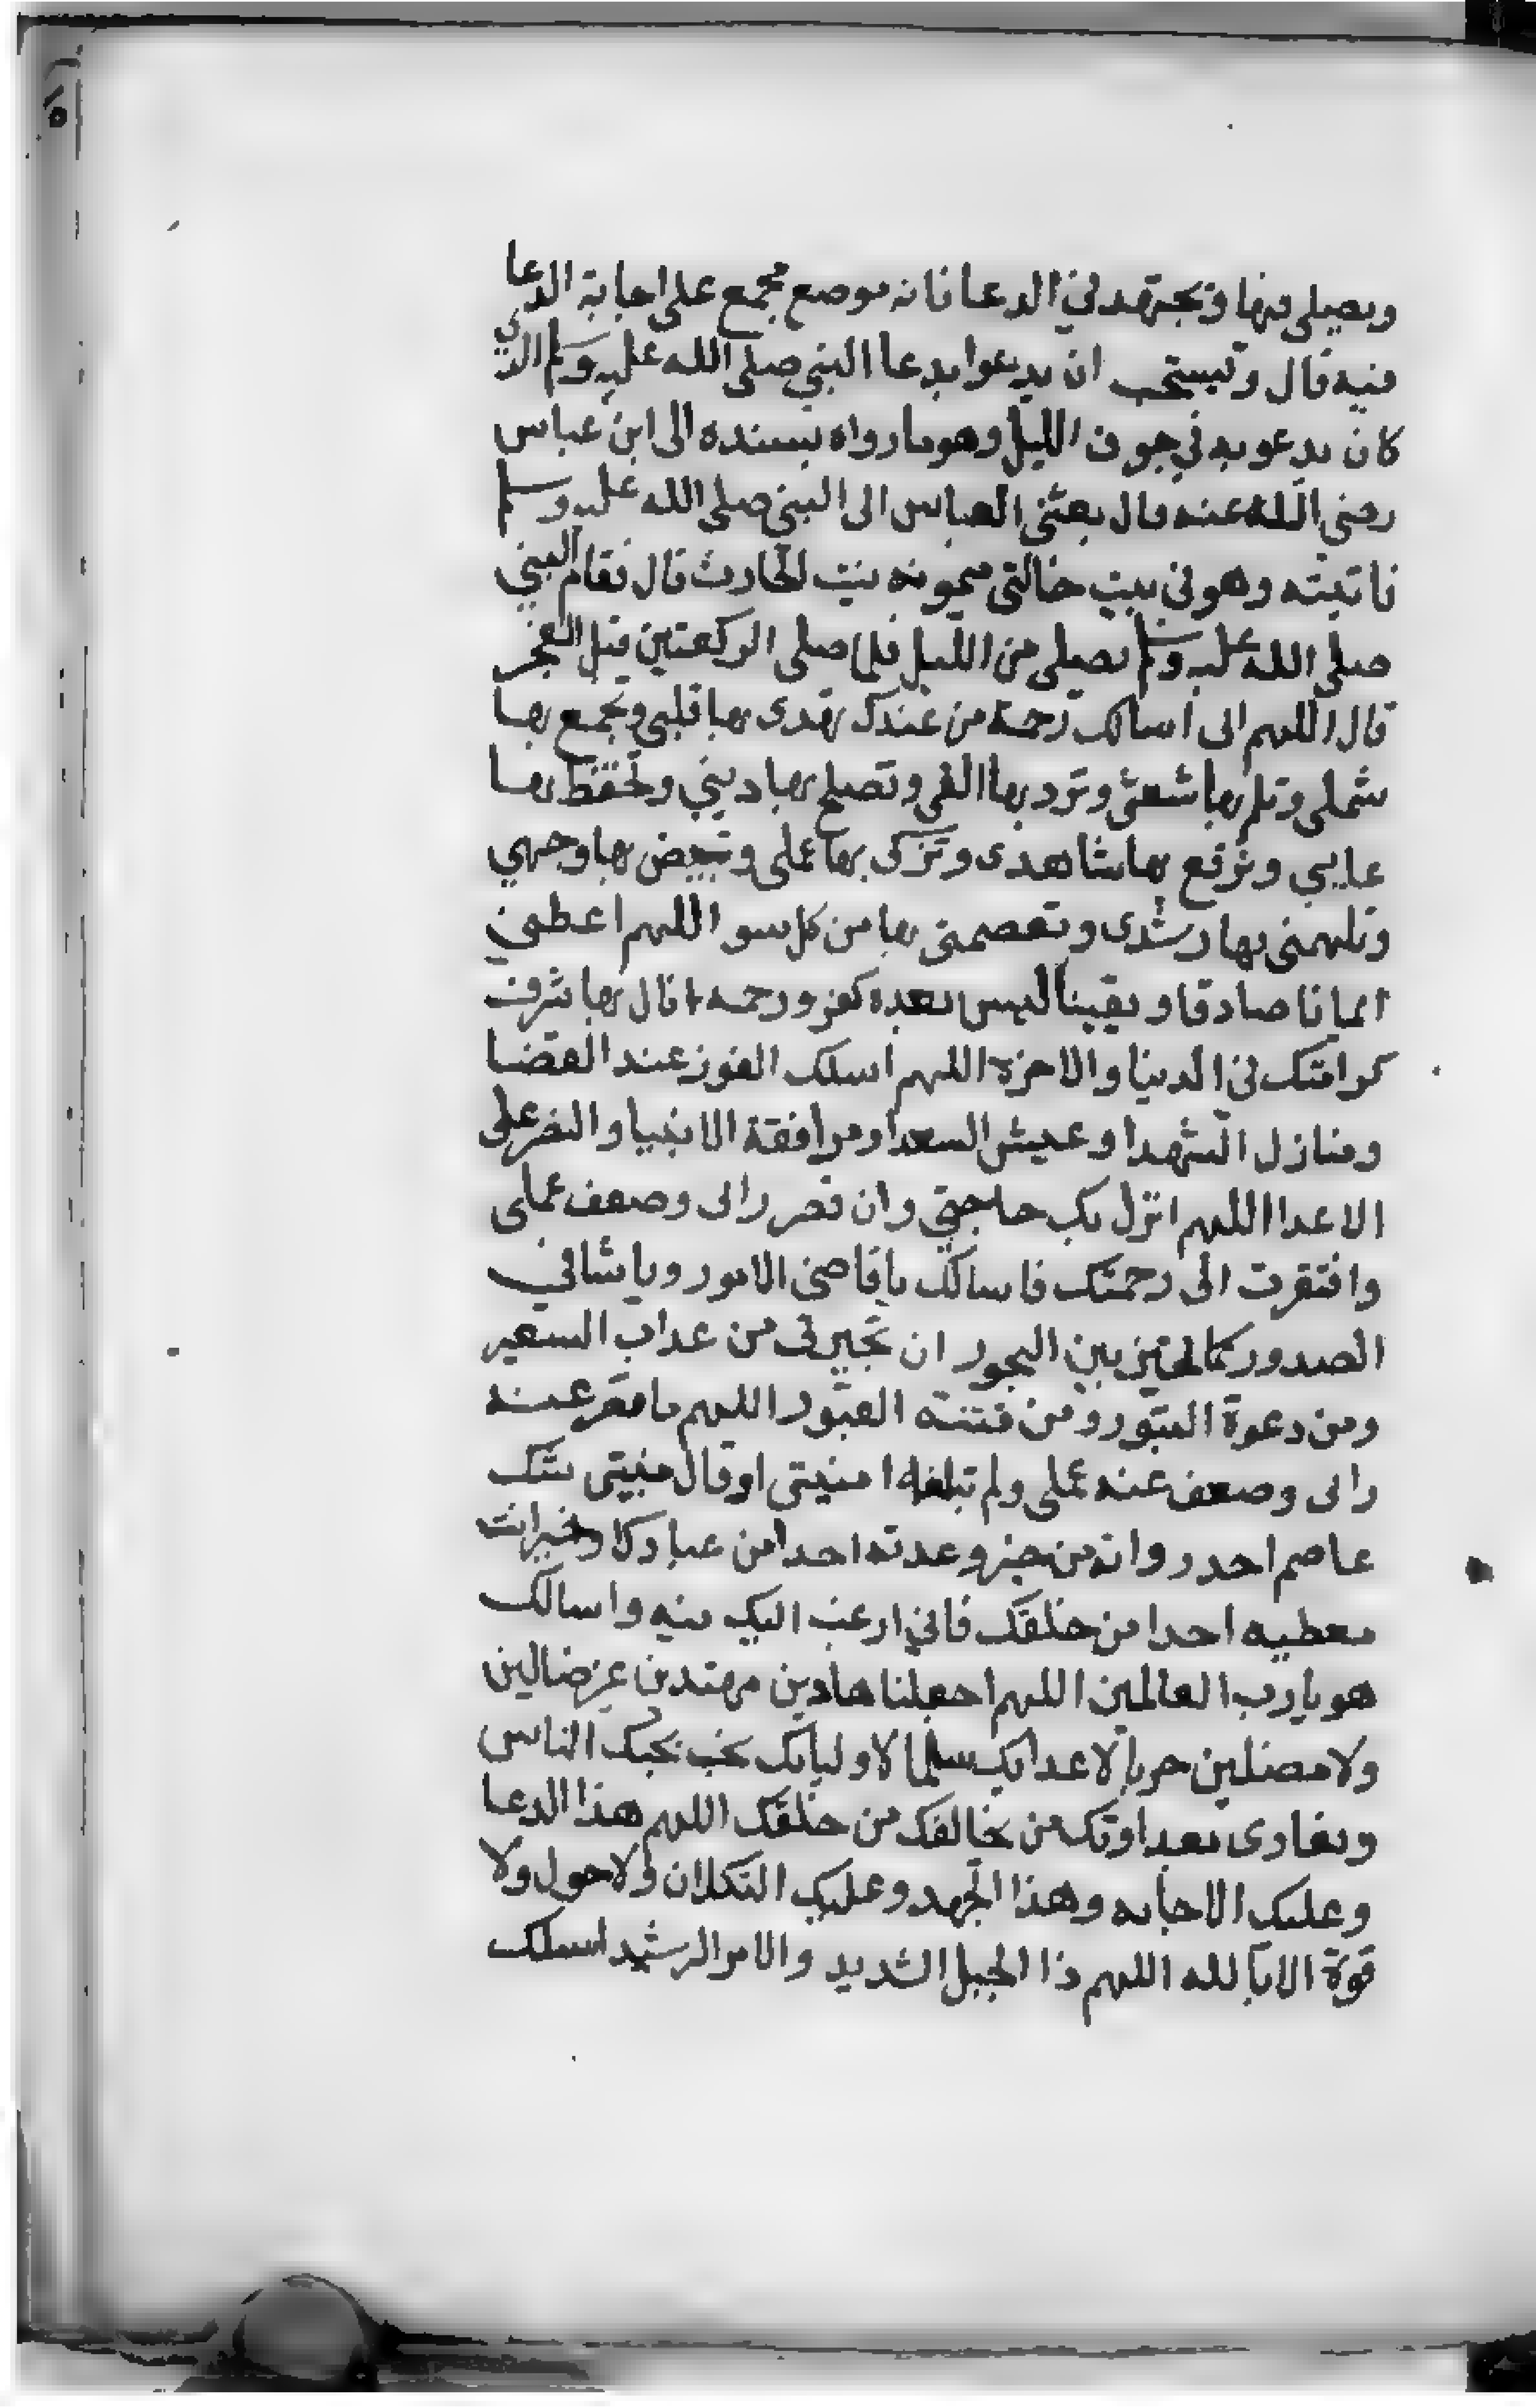 ويصلي فيها ويجتهد في الدعا فانه موضع مجمع على اجابة الدعا
فيه قال ويستحب ان يدعوا بدعا النبي صلى الله عليه وسلم الذي
كان يدعو به في جوف الليل وهو ما رواه بسنده الى ابن عباس
رضي الله عنه قال بعثني العباس الى النبي صلى الله عليه وسلم
فاتيته وهو في بيت خالتي ميمونه بنت الحارث قال فقام النبي
صلى الله عليه وسلم يصلي من الليل فلما صلى الركعتين قبل الفجر
قال اللهم اني أسالك رحمة من عندك تهدى بها قلبي وتجمع بها
شملي وتلم بها شعثي وترد بها الفي وتصلح بها ديني وتحفظ بها
غايبي وترفع بها شاهدي وتزكى بها عملي وتبيض بها وجهي
وتلهمني بها رشدى وتعصمني بها من كل سو اللهم اعطني
ايمانا صادقا ويقينا ليس بعده كفر ورحمه انال بها شرف
كرامتك في الدنيا والاخرة اللهم اسلك الفوز عند القضا
ومنازل الشهدا وعيش السعدا ومرافقة الانبيا والنصر على
الاعدا اللهم انزل بك حاجتي وان قصر راى وضعف عملى
وافتقرت الى رحمتك فاسالك يا قاضي الامور ويا شافي
الصدور كما تجيز بين البحور ان تجيرني من عذاب السعير
ومن دعوة الثبور ومن فتنة القبور اللهم ما قصر عنه
راى وضعف عنه عملي ولم تبلغه امنيتي او قال منيتي شك
عاصم احد رواته من خير وعدته احدا من عبادك او خير انت
معطيه احدا من خلقك فاني ارغب اليك فيه واسالك
هو يا رب العالمين اللهم اجعلنا هادين مهتدين غير ضالين
ولا مضلين حربا لاعدايك سلما لاوليايك نحب بحبك الناس
ونعادى بعداوتك من خالفك من خلقك اللهم هذا الدعا
وعليك الاجابه وهذا الجهد وعليك التكلان ولا حول ولا
قوة الا بالله اللهم ذا الحبل الشديد والامر الرشيد اسلك